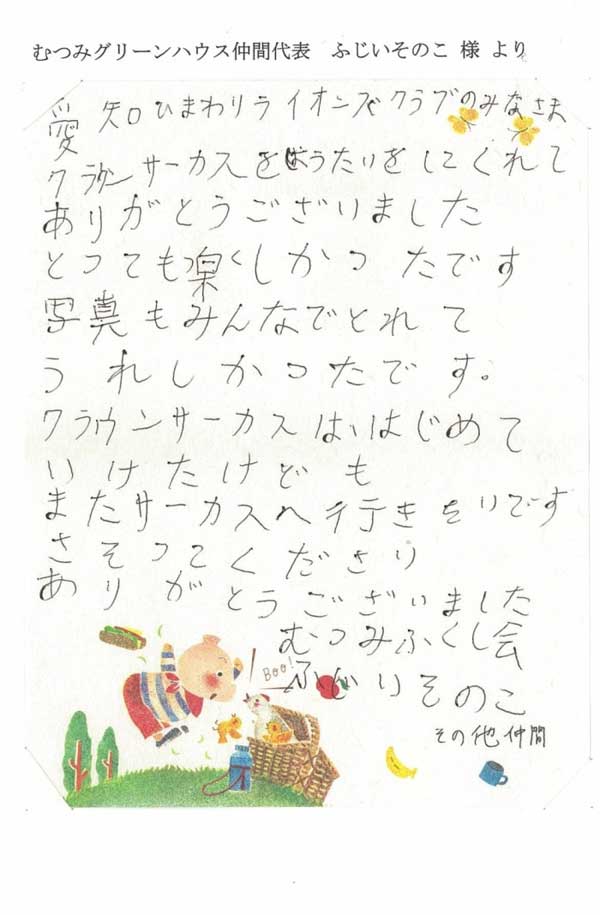 むつみグリーンハウス仲間代表　ふじいそのこ 様 より
愛知ひまわりライオンズクラブのみなさま
クラウンサーカスをぼうたいをしてくれて
ありがとうございました
とっても楽くしかったです
写真もみんなでとれて
うれしかったです。
クラウンサーカスはいはじめて
いけたけども
またサーカスへ行きをいです
さそってください
ありがとうございました
むつみふくし会
ふじいそのこ
その他仲間
Boo!